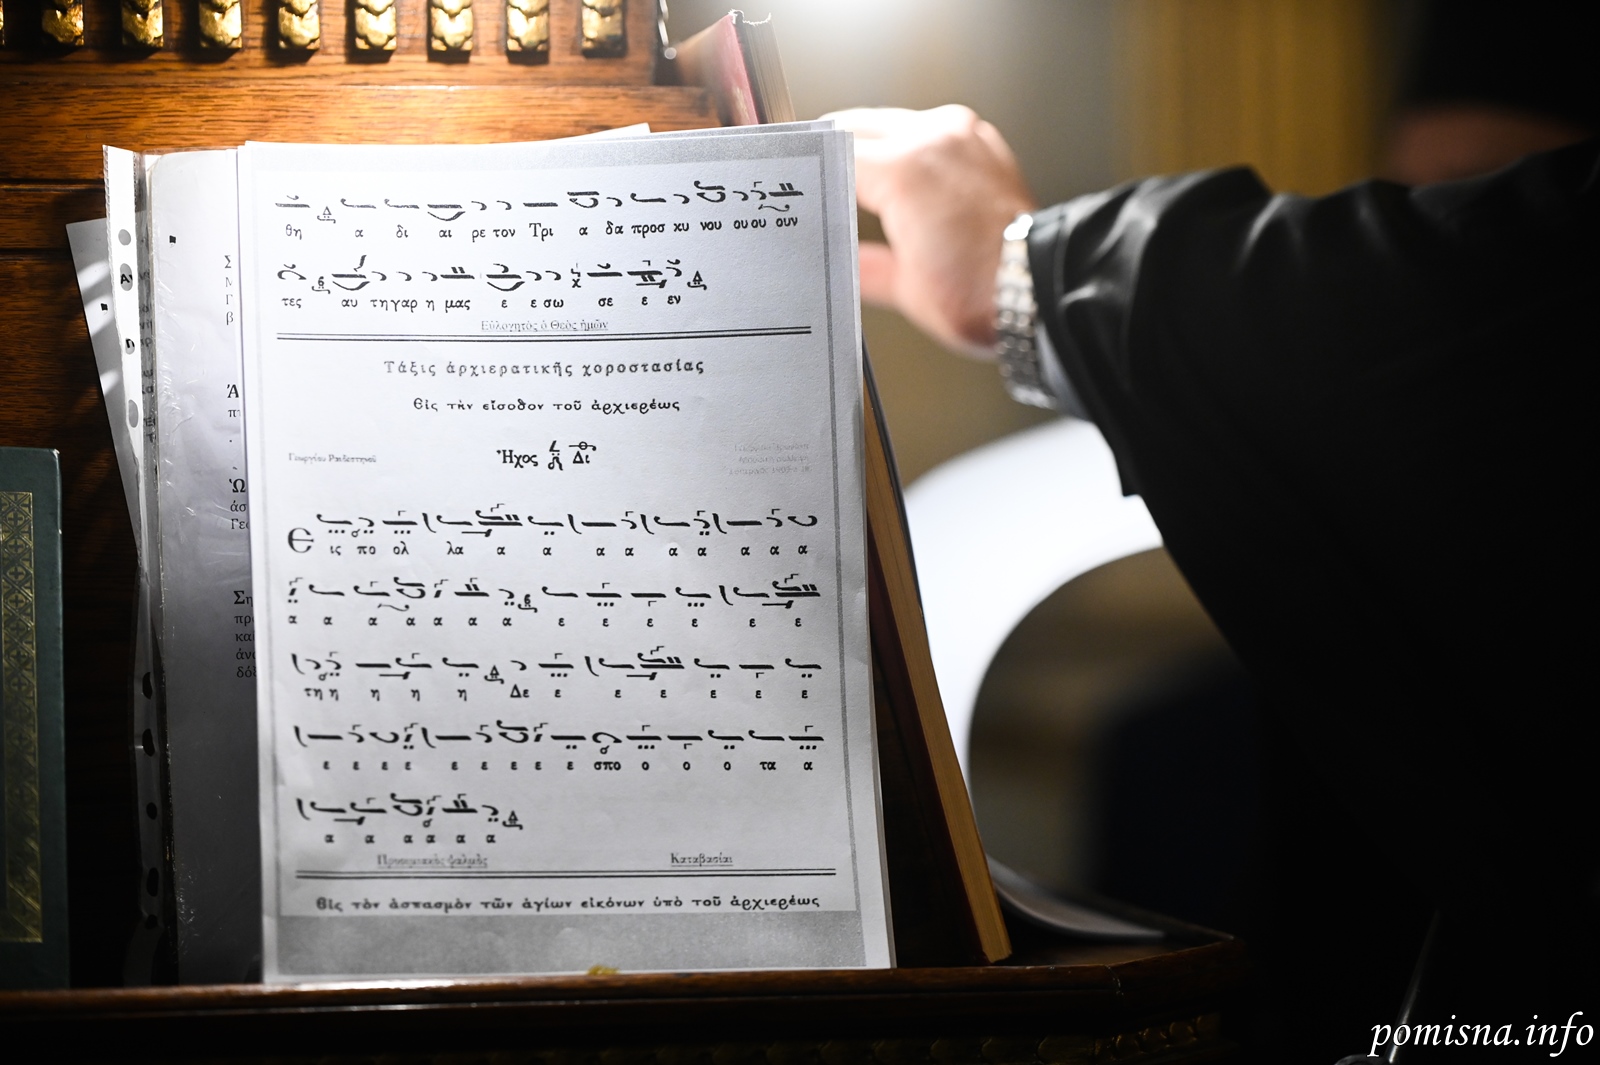 θη α δι αι ρε τον Τρι α δα προσ κυ νου ου ου ουν
τες αυ τη γαρ η μας ε ε σω σε ε εν
Εὐλογητὸς ὁ Θεὸς ἡμῶν
Τάξις ἀρχιερατικῆς χοροστασίας
Εἰς τὴν εἴσοδον τοῦ ἀρχιερέως
Ἦχος Δι
Γεωργίου Ραιδεστηνοῦ
Ε ις πο ολ λα α α α α α α α α α
α α α α α α α ε ε ε ε ε ε
τη η η η η Δε ε ε ε ε ε ε
ε ε ε ε ε ε ε ε ε σπο ο ο ο τα α
α α α α α α
Προοιμιακὸς ψαλμὸς Καταβασίαι
Εἰς τὸν ἀσπασμὸν τῶν ἁγίων εἰκόνων ὑπὸ τοῦ ἀρχιερέως
pomisna.info